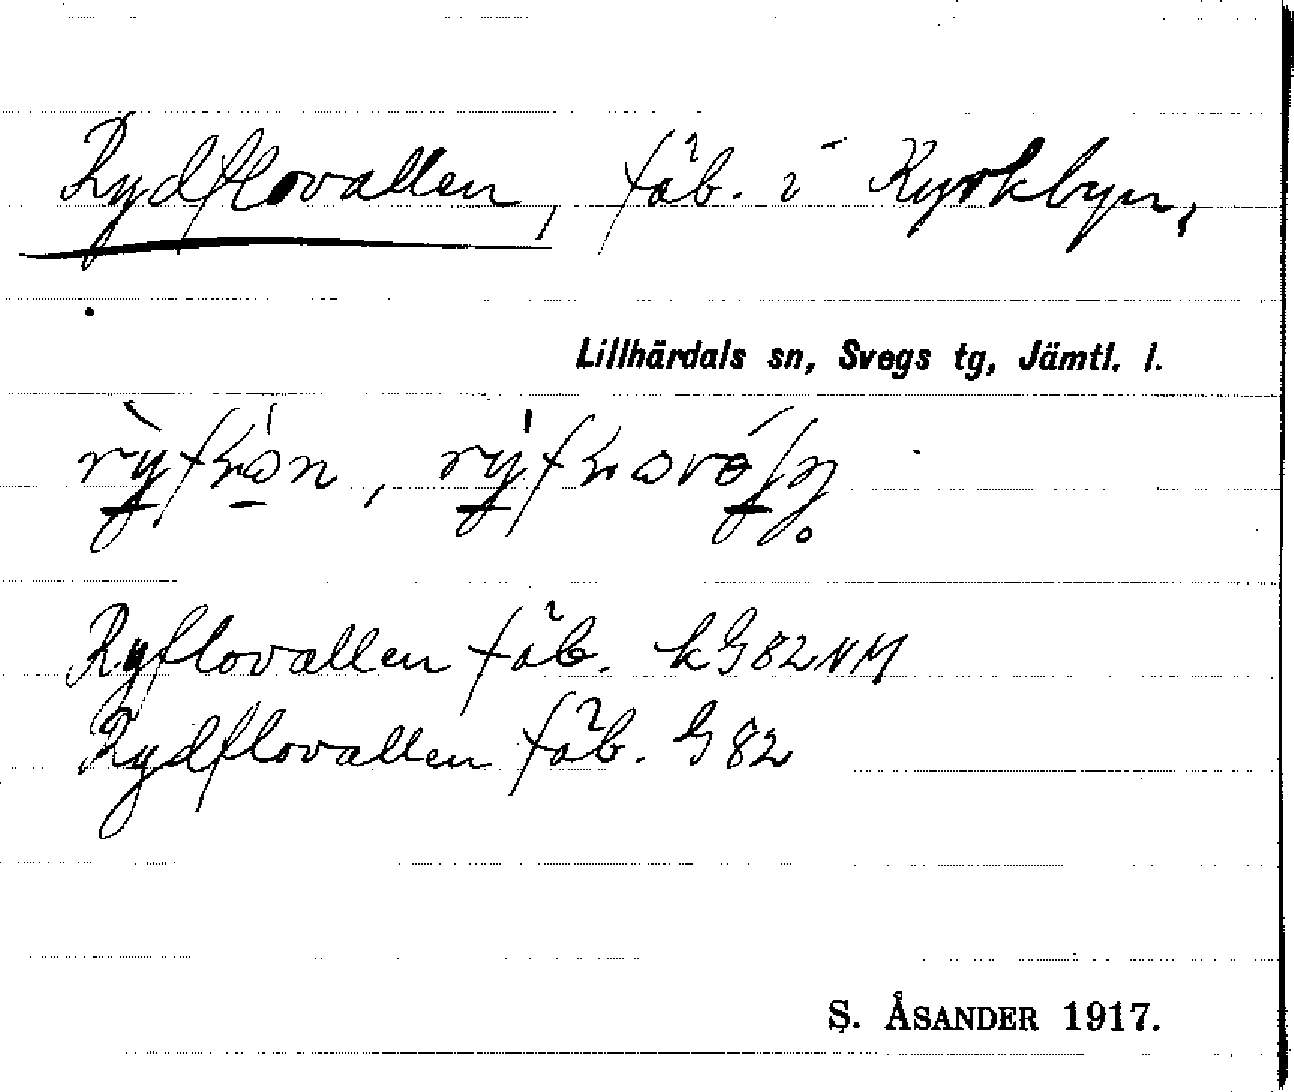 Rydflovallen, fäb. i Kyrkbyn,
Lillhärdals sn, Svegs tg, Jämtl. l.
Ryflovallen fäb. kG82NM
Rydflovallen fäb. G82
S. ÅSANDER 1917.